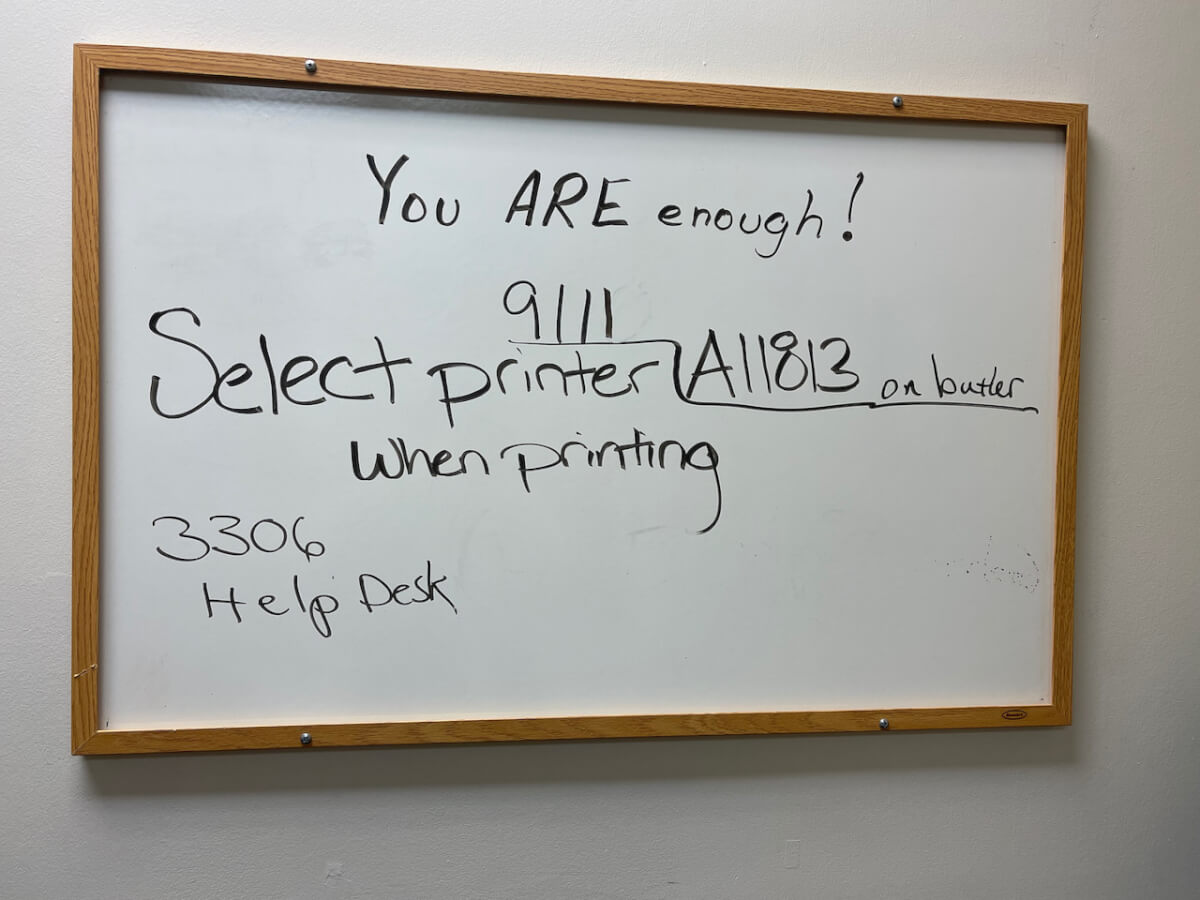 You ARE enough!
9111
Select printer A11813 on butler
when printing
3306
Help Desk